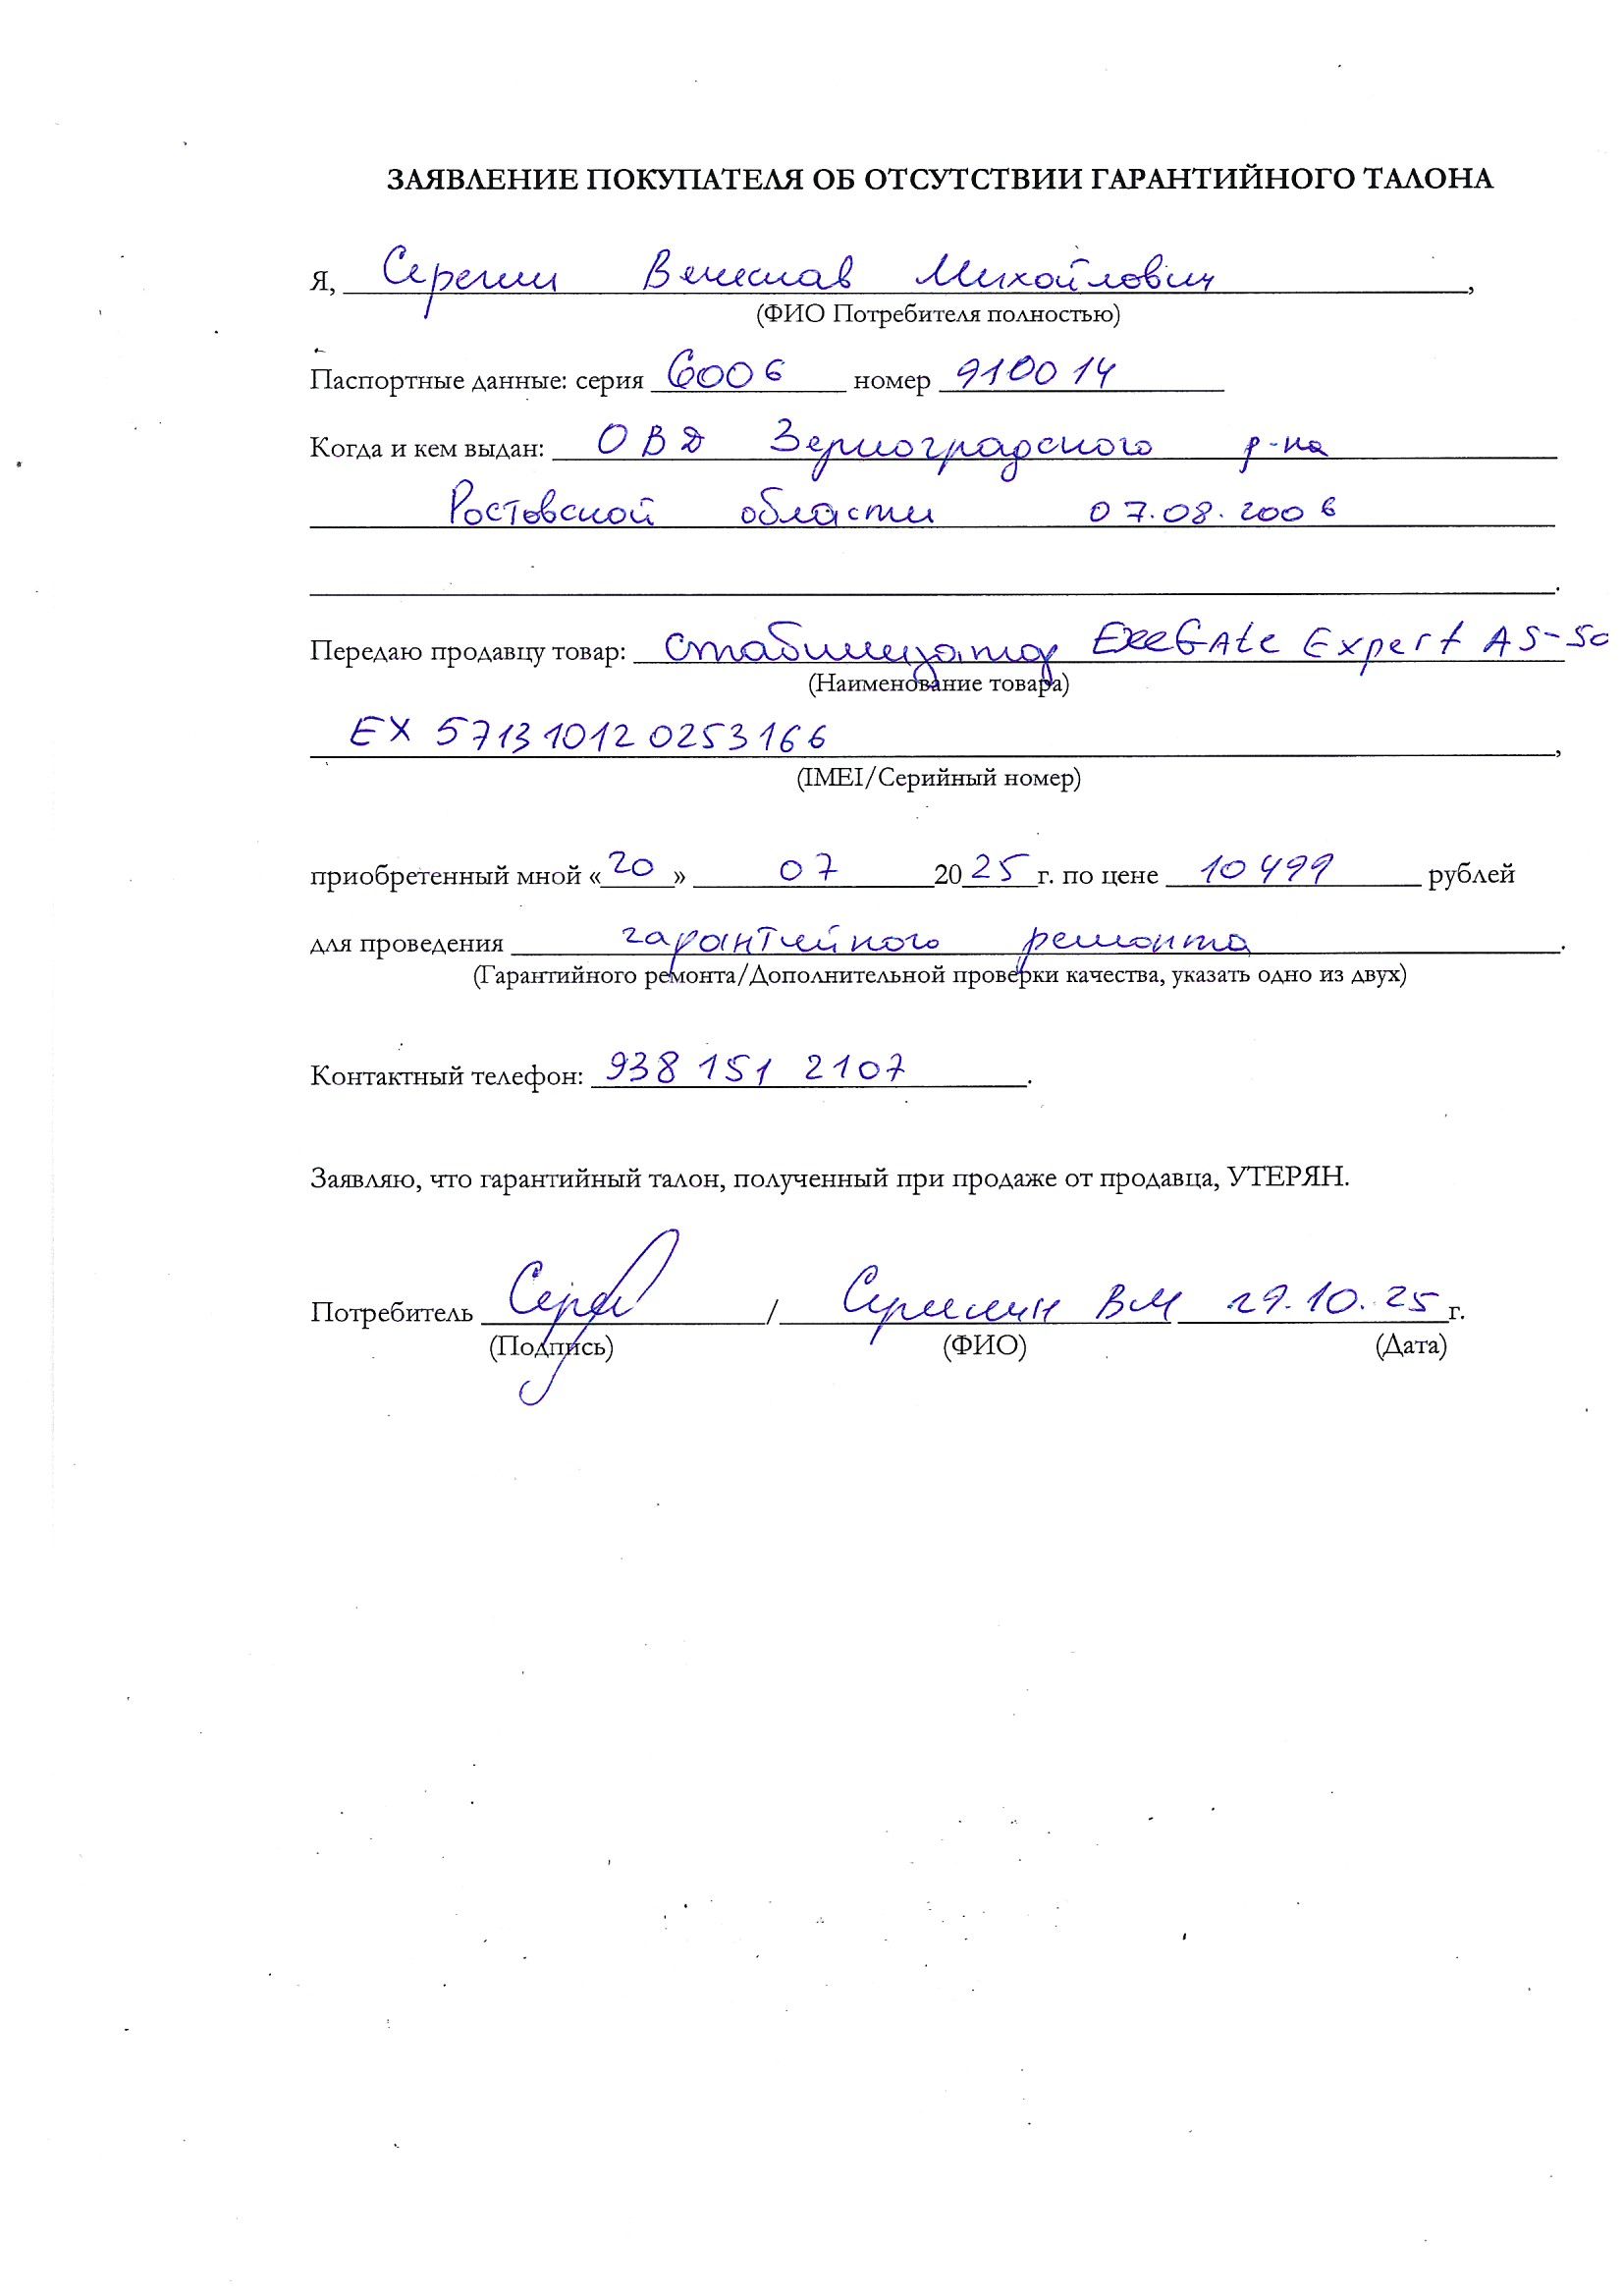 ЗАЯВЛЕНИЕ ПОКУПАТЕЛЯ ОБ ОТСУТСТВИИ ГАРАНТИЙНОГО ТАЛОНА
Я, Вячеслав Михайлович,
(ФИО Потребителя полностью)
Паспортные данные: серия 6006 номер 910014
Когда и кем выдан: ОВД Зерноградского р-на
Ростовской области 07.08.2006
Передаю продавцу товар: стабилизатор ExeGAte Expert AS-50
(Наименование товара)
EX 571310120253166
(IMEI/Серийный номер)
приобретенный мной «20» 07 2025 г. по цене 10499 рублей
для проведения гарантийного ремонта.
(Гарантийного ремонта/Дополнительной проверки качества, указать одно из двух)
Контактный телефон: 938 151 2107.
Заявляю, что гарантийный талон, полученный при продаже от продавца, УТЕРЯН.
Потребитель / ВМ 29.10.25 г.
(Подпись) (ФИО) (Дата)